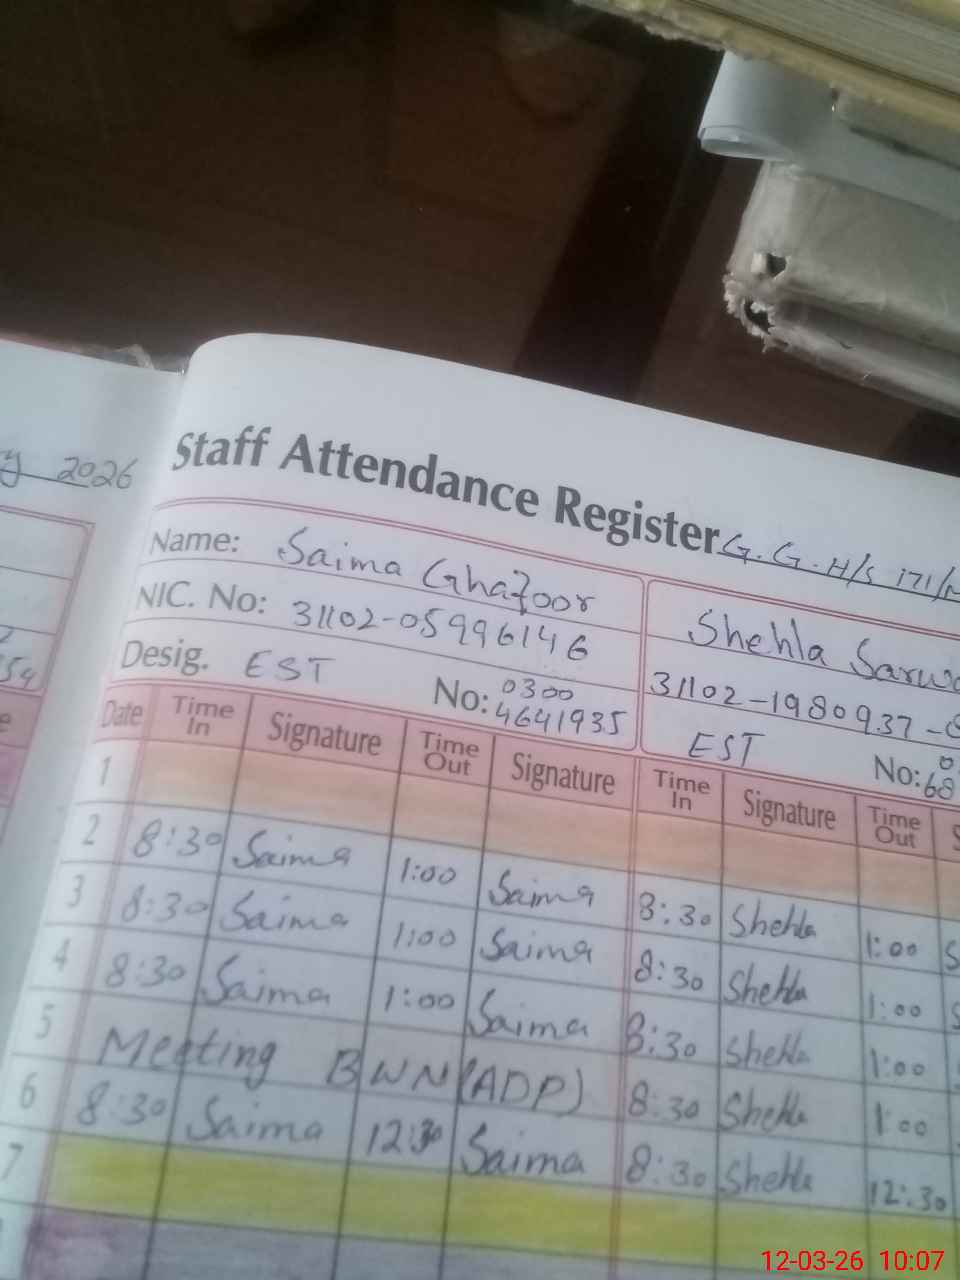 2026
Staff Attendance Register G.G.H/S 171/
Name: Saima Ghafoor
Shehla
NIC. No: 31102-0599614 6
31102-1980937-
Desig. EST No: 0300 4641935
EST No: 68
Date Time In Signature Time Out Signature Time In Signature Time Out
1
2 8:30 Saima 1:00 Saima 8:30 Shehla 1:00
3 8:30 Saima 1:00 Saima 8:30 Shehla 1:00
4 8:30 Saima 1:00 Saima 8:30 Shehla 1:00
5 Meeting BWN (ADP) 8:30 Shehla 1:00
6 8:30 Saima 12:30 Saima 8:30 Shehla 12:30
7
12-03-26 10:07